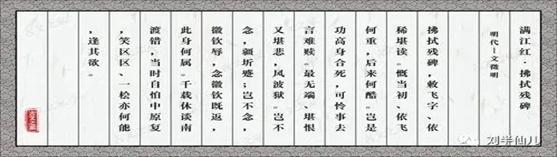 满江红·拂拭残碑
明代-文徵明
拂拭残碑,敕飞字、依
稀堪读。慨当初、依飞
何重,后来何酷。岂是
功高身合死,可怜事去
言难赎。最无端、堪恨
又堪悲,风波狱。岂不
念,疆圻蹙;岂不念,
徽钦辱,念徽钦既返,
此身何属。千载休谈南
渡错,当时自怕中原复
,笑区区、一桧亦何能
,逢其欲。
刘半仙儿